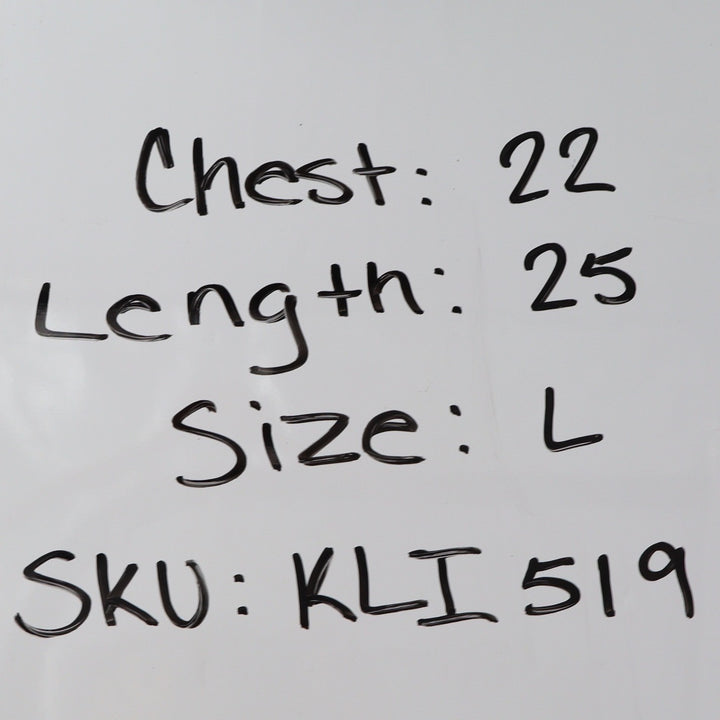 Chest: 22
Length: 25
Size: L
SKU: KLI 519